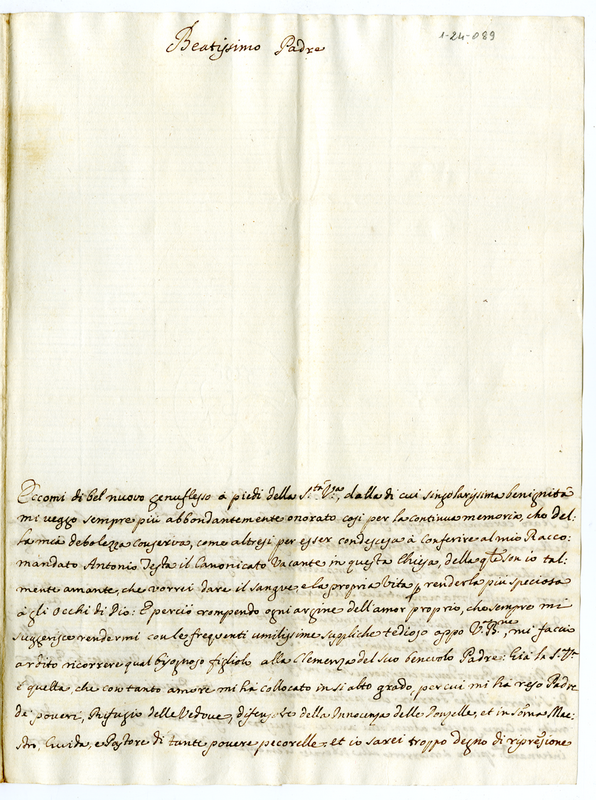 1-24-089
Beatissimo Padre
Eccomi di bel nuovo genuflesso à piedi della S.tà V.ra, dalla di cui singolarissima benignità
mi veggo sempre più abbondantemente onorato così per la continua memoria, che del-
la mia debolezza conserva, come altresì per esser condescesa à conferire al mio Racco-
mandato Antonio Testa il Canonicato Vacante in questa Chiesa, della q.le son io tal-
mente amante, che vorrei dare il sangue, e la propria Vita p renderla più speciosa
à gli Occhi di Dio: E perciò rompendo ogni argine dell'amor proprio, che sempre mi
suggerisce rendermi con le frequenti umilissime suppliche tedioso appo V.ra B.ne, mi faccio
ardito ricorrere qual bisognoso figliolo alla Clemenza del suo benevolo Padre: Già la S.tà V.ra
è quella, che con tanto amore mi hà collocato in sì alto grado, per cui mi hà reso Padre
de' poveri, Refugio delle Vedove, difensore della Innocenza delle Donzelle, et in somma Mae-
stro, Guida, e Pastore di tante povere pecorelle; et io sarei troppo degno di riprensione